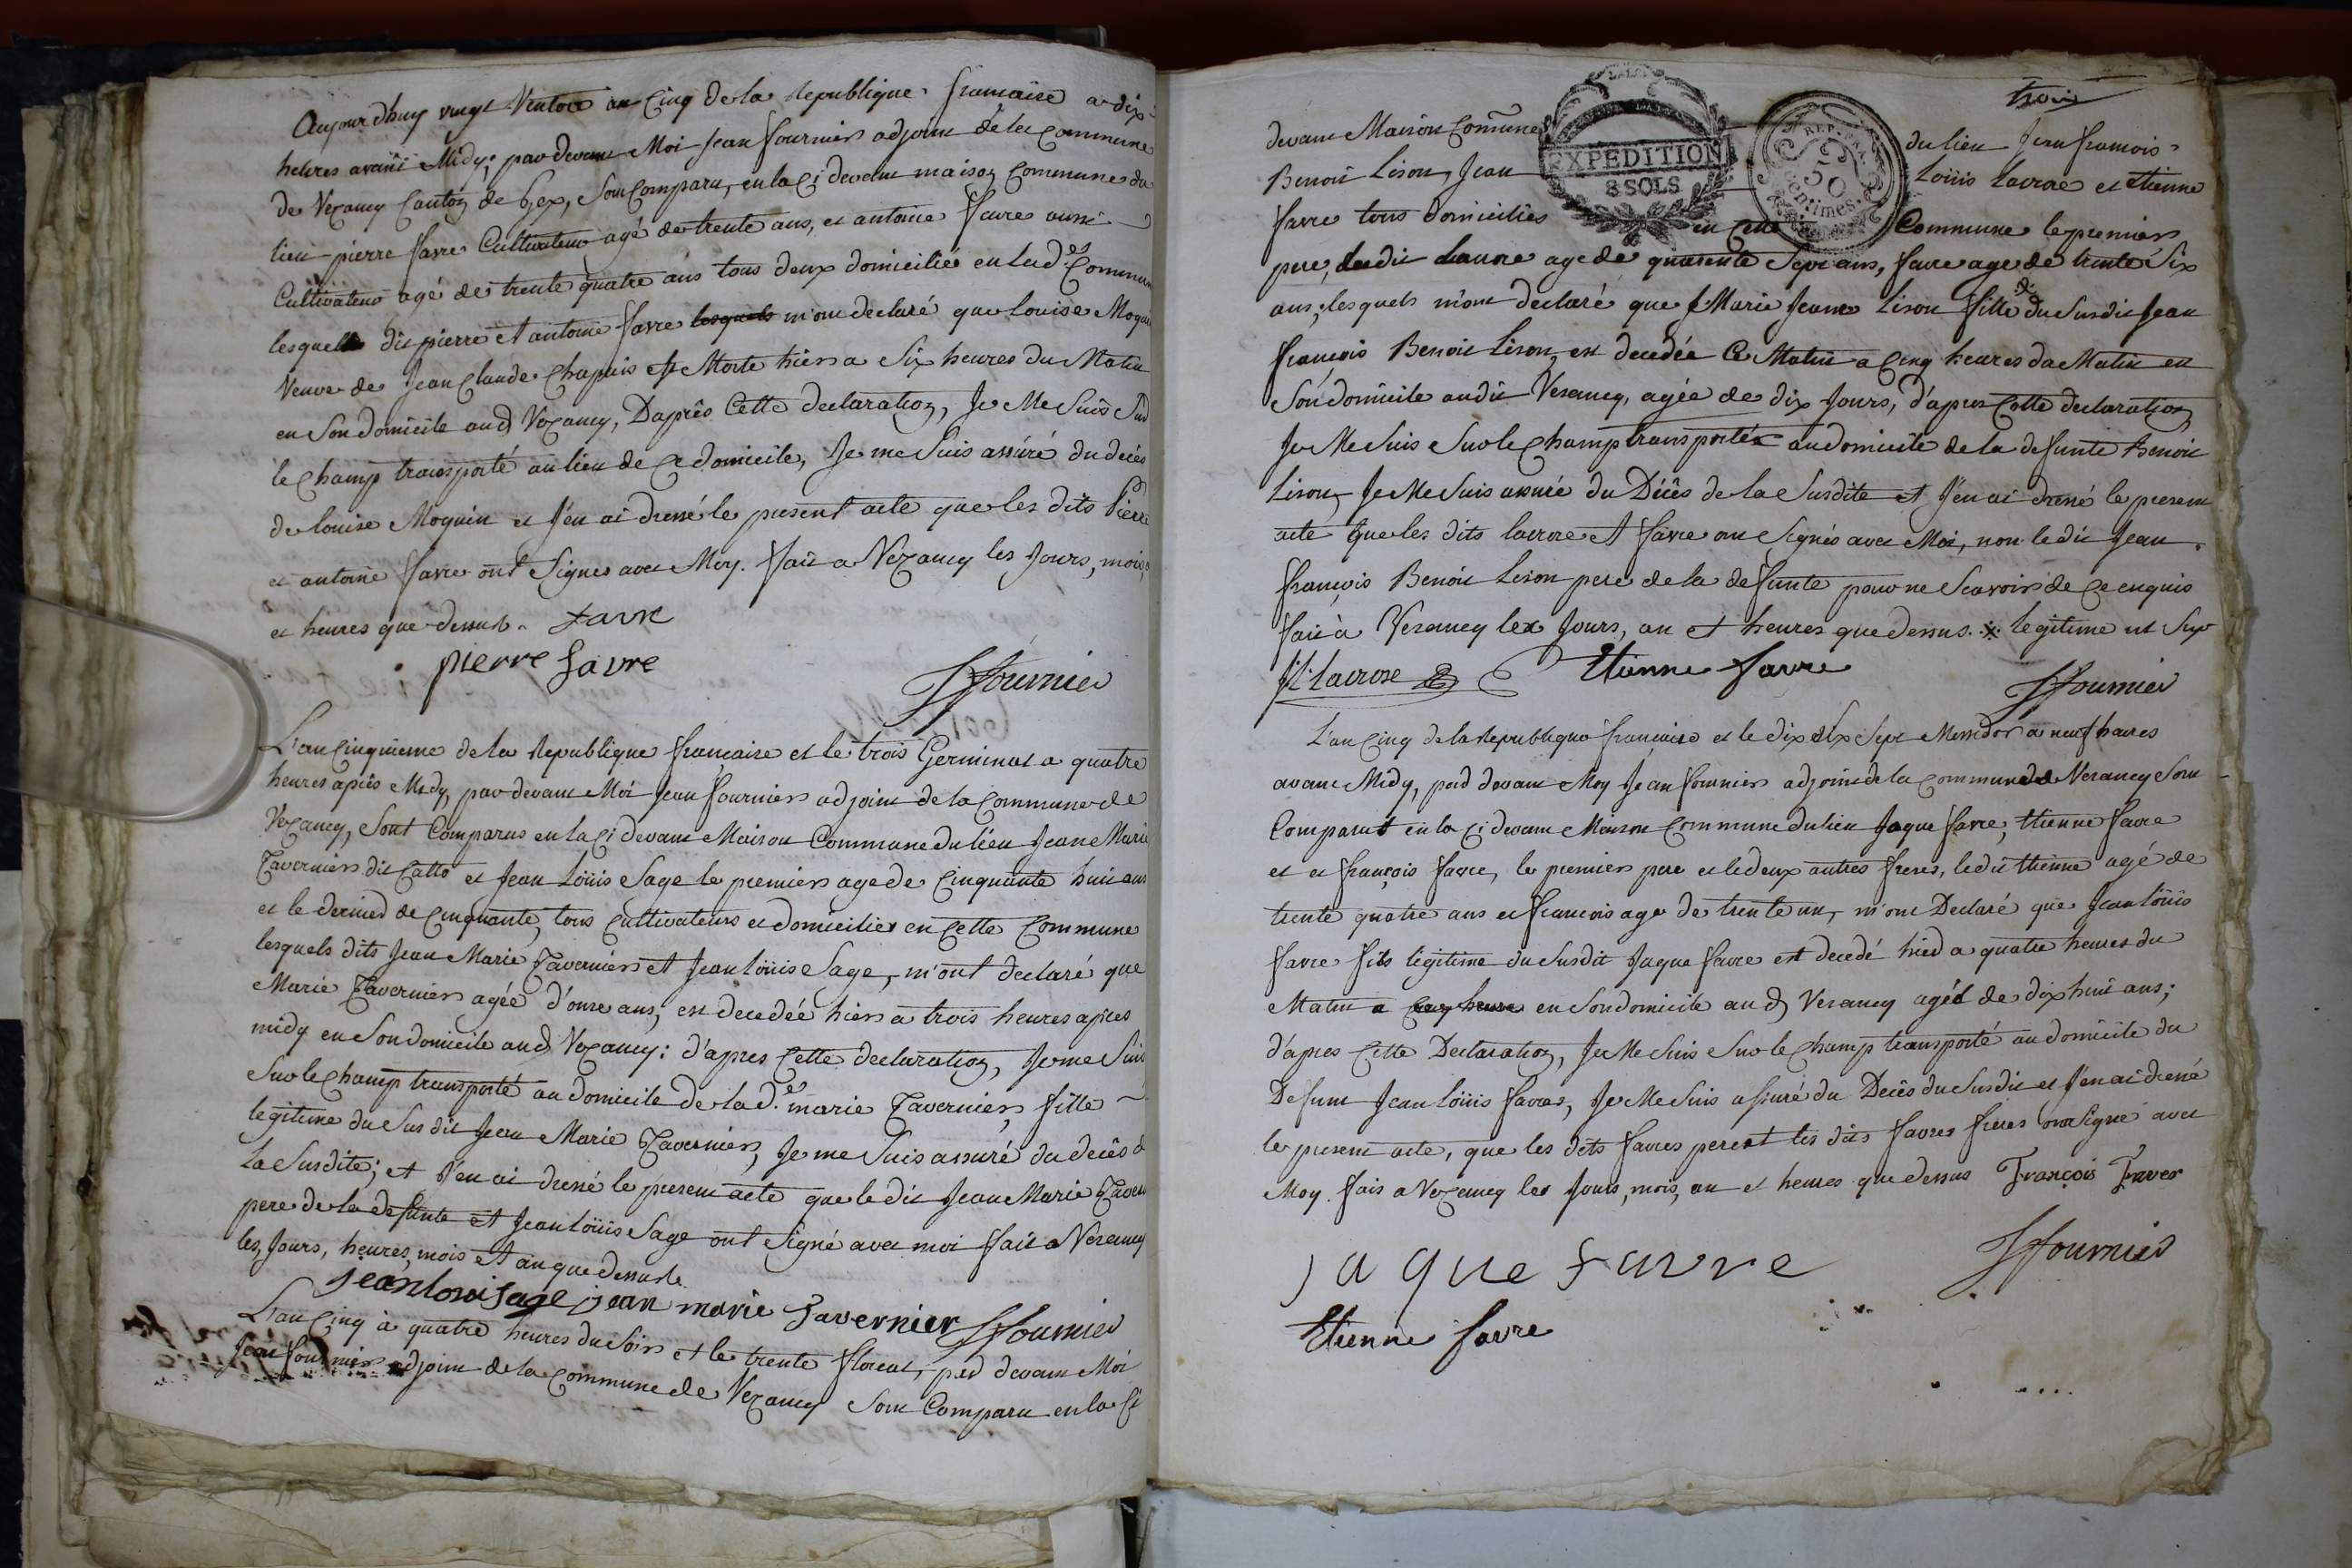 Aujourdhuy vingt Ventose an Cinq de la Republique francaise a dix
heures avant Midy, par devant Moi Jean fournier adjoint de la Commune
de Vezancy Canton de Gex, Sont Comparu, en la Ci devant maison Commune du
lieu pierre favre Cultivateur agé de trente ans, et antoine favre aussi
Cultivateur agé de trente quatre ans tous deux domiciliés en lad.e Commune
lesquells dit pierre et antoine favre lesquels m'ont declaré que Louise Moquin
Veuve de Jean Claude Chapuis est Morte hier a Six heures du Matin
en Son domicile aud Vezancy, Daprès Cette declaration, Je Me Suis Sur
le Champ transporté au lieu de Ce domicile, Je me Suis assuré du decés
de louise Moquin et J'en ai dressé le present acte que les dits Pierre
et antoine favre ont Signés avec Moy. fait a Vézancy les Jours, mois,
et heures que dessus. favre
pierre favre
JFournier
L'an Cinquieme de la Republique francaise et le trois Germinal a quatre
heures après Midy, par devant Moi Jean fournier adjoint de la Commune de
Vezancy, Sont Comparus en la Ci devant Maison Commune du lieu Jean Marie
Tavernier dit Catto et Jean Loüis Sage le premier age de Cinquante huit ans
et le dernier de Cinquante, tous Cultivateurs et domiciliés en Cette Commune
lesquels dits Jean Marie Tavernier et Jean loüis Sage, m'ont declaré que
Marie Tavernier agée d'onze ans, est decedée hier a trois heures apres
midy en Son domicile aud Vezancy: d'apres Cette declaration, Je me Suis
Sur le Champ transporté au domicile de la d.e marie Tavernier, fille
legitime du Sus dit Jean Marie Tavernier, Je me Suis assuré du decès de
la Susdite; et J'en ai dressé le present acte que le dit Jean Marie Taver
pere de la defunte et Jean loüis Sage ont Signé avec moi fait a Vezancy
les Jours, heures, mois et an que dessus
Jean loui Sage jean marie Tavernier JFournier
L'an Cinq à quatre heures du Soir et le trente floreal, par devant Moi
Jean fournier adjoint de la Commune de Vezancy Sont Comparu en la Ci
trois
devant Maison Comune du lieu Jean francois
Benoit Lison, Jean Loüis Lacroze et Etienne
favre tous domiciliés en Cette Commune le premier
pere, le dit Lacroze age de quarente Sept ans, favre age de trente Six
ans, lesquels m'ont declaré que Marie Jeanne Lison fille du Susdit Jean
françois Benoit Lison, est decedée Ce Matin a Cinq heures du Matin en
Son domicile audit Vesancy, agée de dix Jours, d'apres Cette declaration
Je Me Suis Sur le Champ transporté au domicile de la defunte Benoit
Lison, Je Me Suis assuré du Décès de la Susdite et J'en ai dressé le present
acte que les dits lacroze et favre ont Signés avec Moi, non le dit Jean
françois Benoit Lison pere de la defunte pour ne Scavoir de Ce enquis
fait à Vesancy les Jours, an et heures que dessus. legitime
J L Lacroze Etienne favre
JFournier
L'an Cinq de la Republique francaise et le dix Sept Messidor a neuf heures
avant Midy, par devant Moy Jean fournier adjoint de la Commune de Vesancy Sont
Comparut en la Ci devant Maison Commune du lieu Jaque favre, Etienne favre
et et françois favre, le premier pere et le deux autres freres, le dit Etienne agé de
trente quatre ans et francois age de trente un, m'ont Declaré que Jean loüis
favre fils legitime du Susdit Jaque favre est decedé hier a quatre heures du
Matin a Cinq heure en Son domicile aud Vesancy agé de dix huit ans;
d'apres Cette Declaration, Je Me Suis Sur le Champ transporté au domicile du
Defunt Jean loüis favre, Je Me Suis assuré du Decès du Susdit et J'en ai dressé
le present acte, que les dits favres pere et les dits favres freres ont Signé avec
Moy. fais a Vezancy les Jours, mois, an et heures que dessus François Faver
JFournier
jaque favre
Etienne favre
EXPÉDITION
8 SOLS
REP. FRA.
50
Centimes